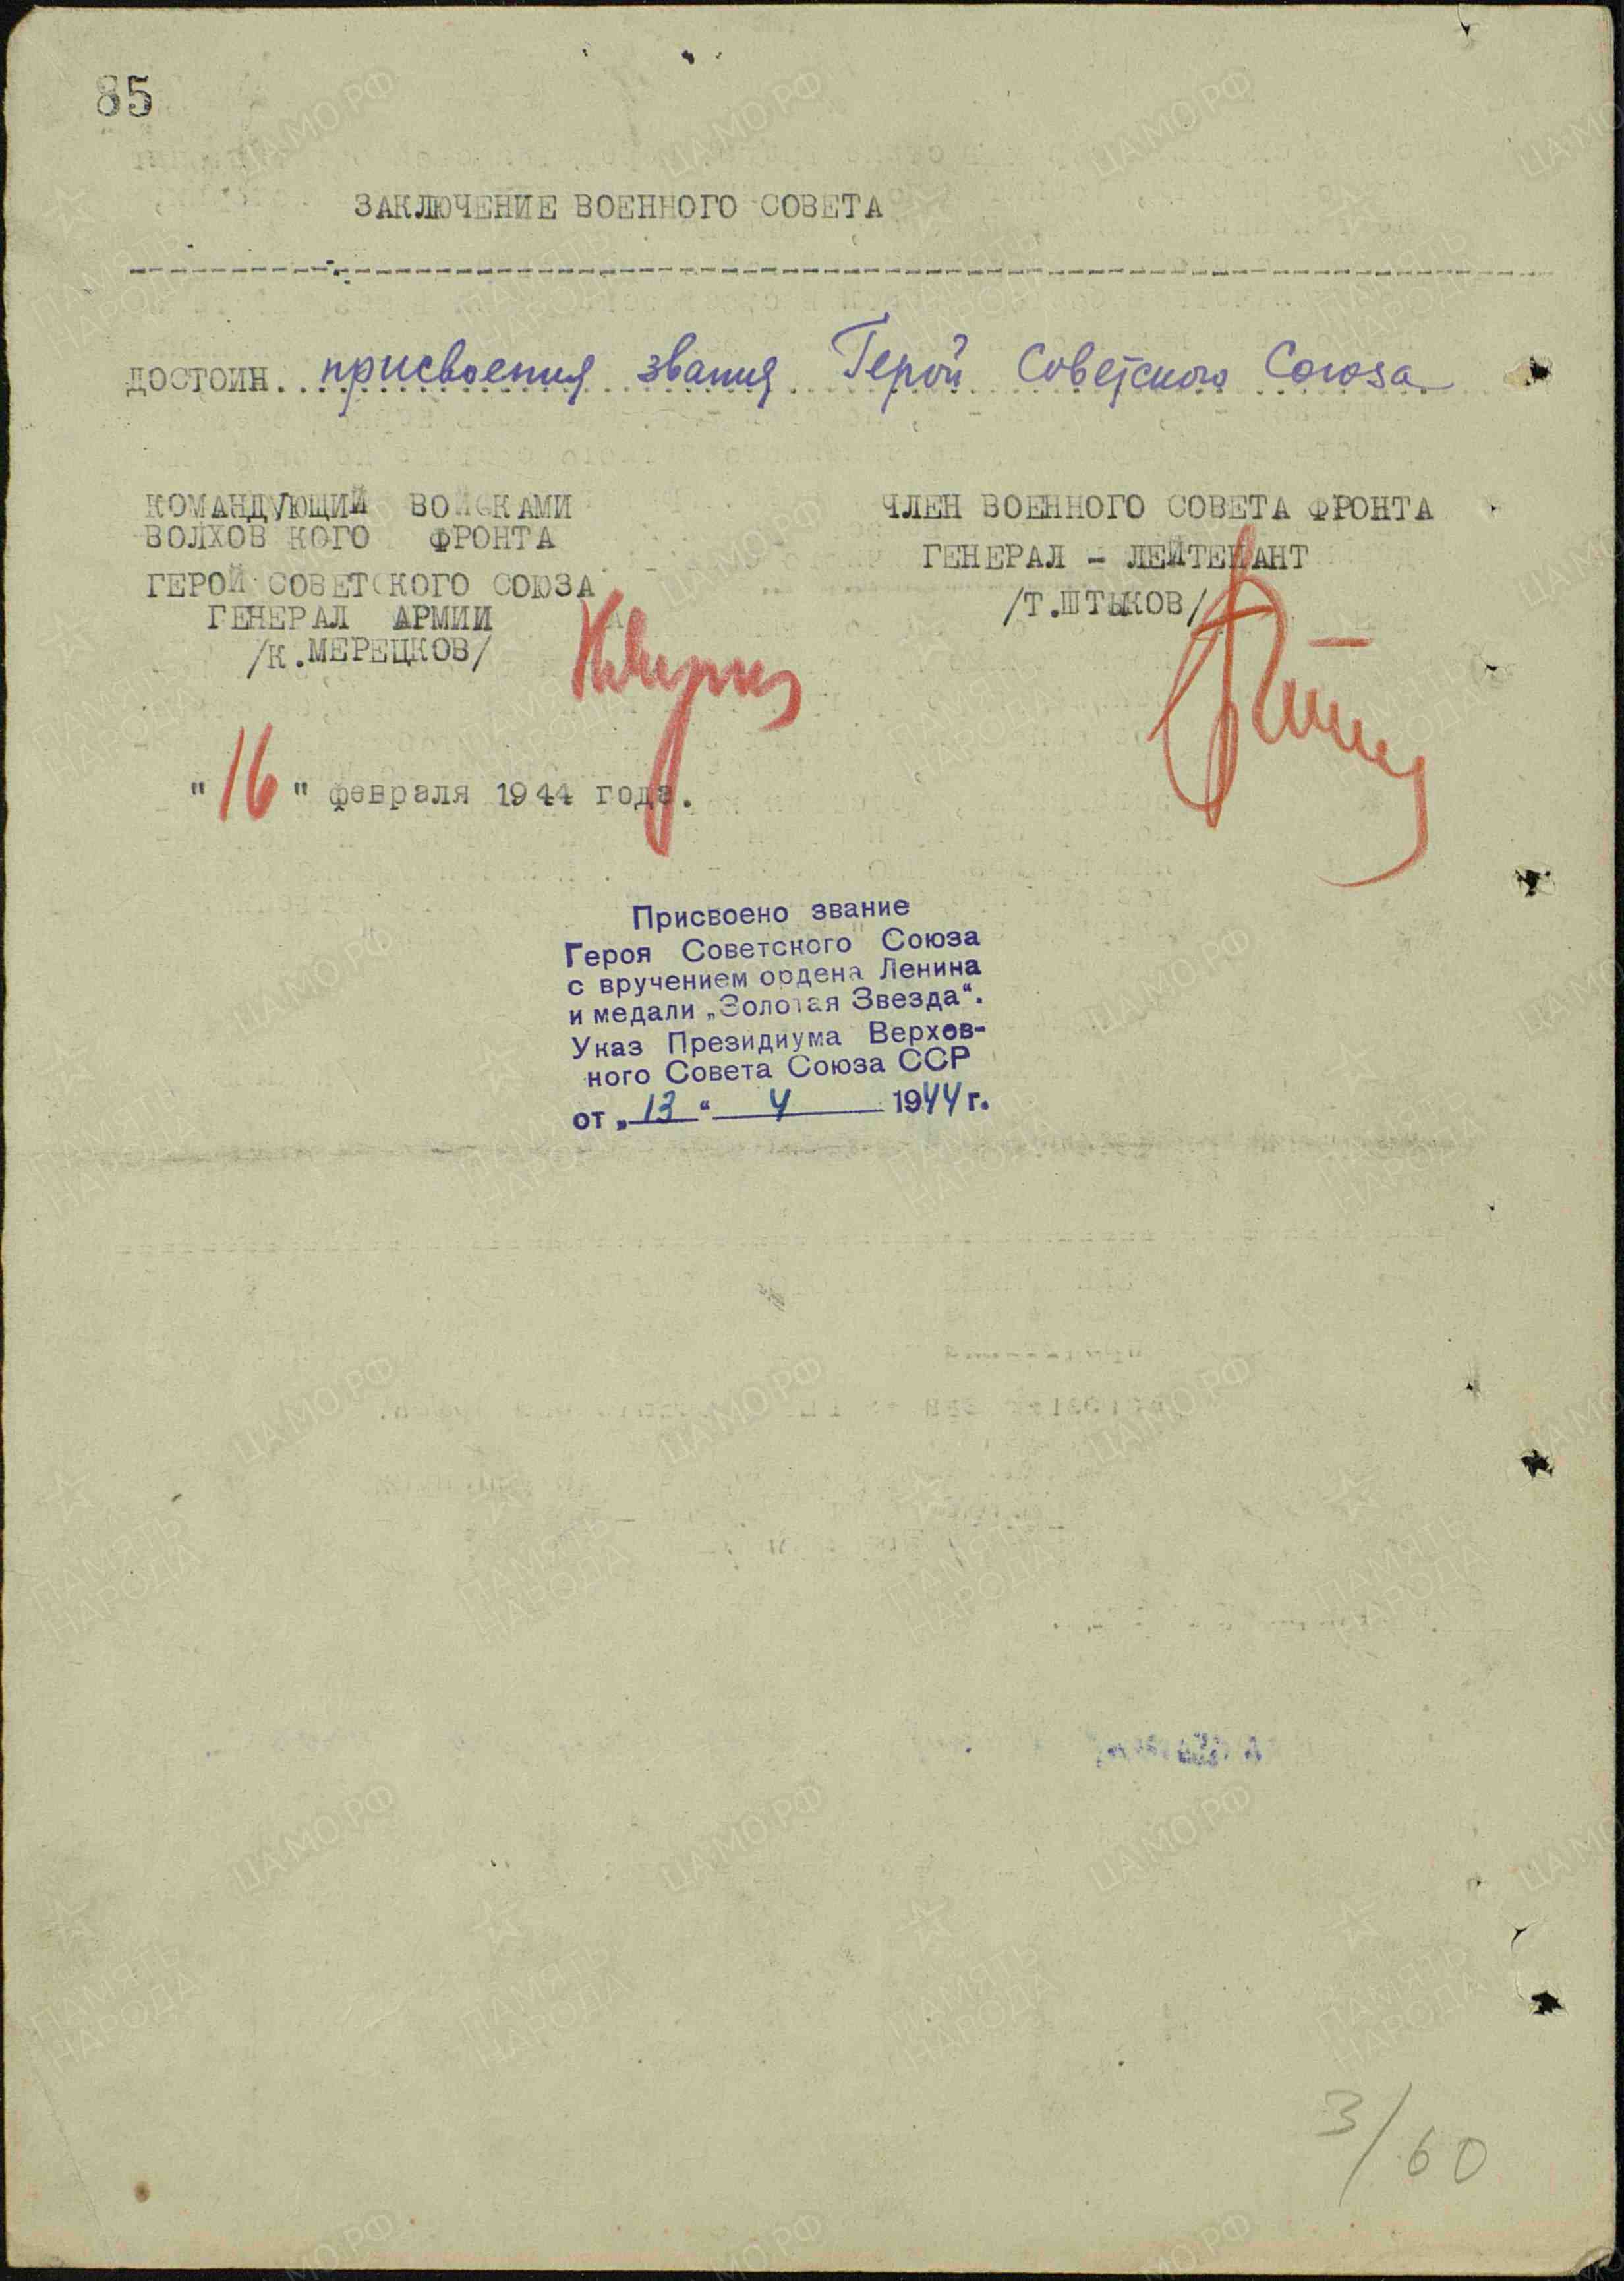 85
ЗАКЛЮЧЕНИЕ ВОЕННОГО СОВЕТА
ДОСТОИН присвоения звания Герой Советского Союза
КОМАНДУЮЩИЙ ВОЙСКАМИ
ВОЛХОВ КОГО ФРОНТА
ГЕРОЙ СОВЕТСКОГО СОЮЗА
ГЕНЕРАЛ АРМИИ
/К.МЕРЕЦКОВ/
ЧЛЕН ВОЕННОГО СОВЕТА ФРОНТА
ГЕНЕРАЛ - ЛЕЙТЕНАНТ
/Т.ШТЫКОВ/
"16" февраля 1944 года.
Присвоено звание
Героя Советского Союза
с вручением ордена Ленина
и медали „Золотая Звезда“.
Указ Президиума Верхов-
ного Совета Союза ССР
от „13“ 4 1944 г.
3/60
ЦАМО.РФ
ПАМЯТЬ
НАРОДА